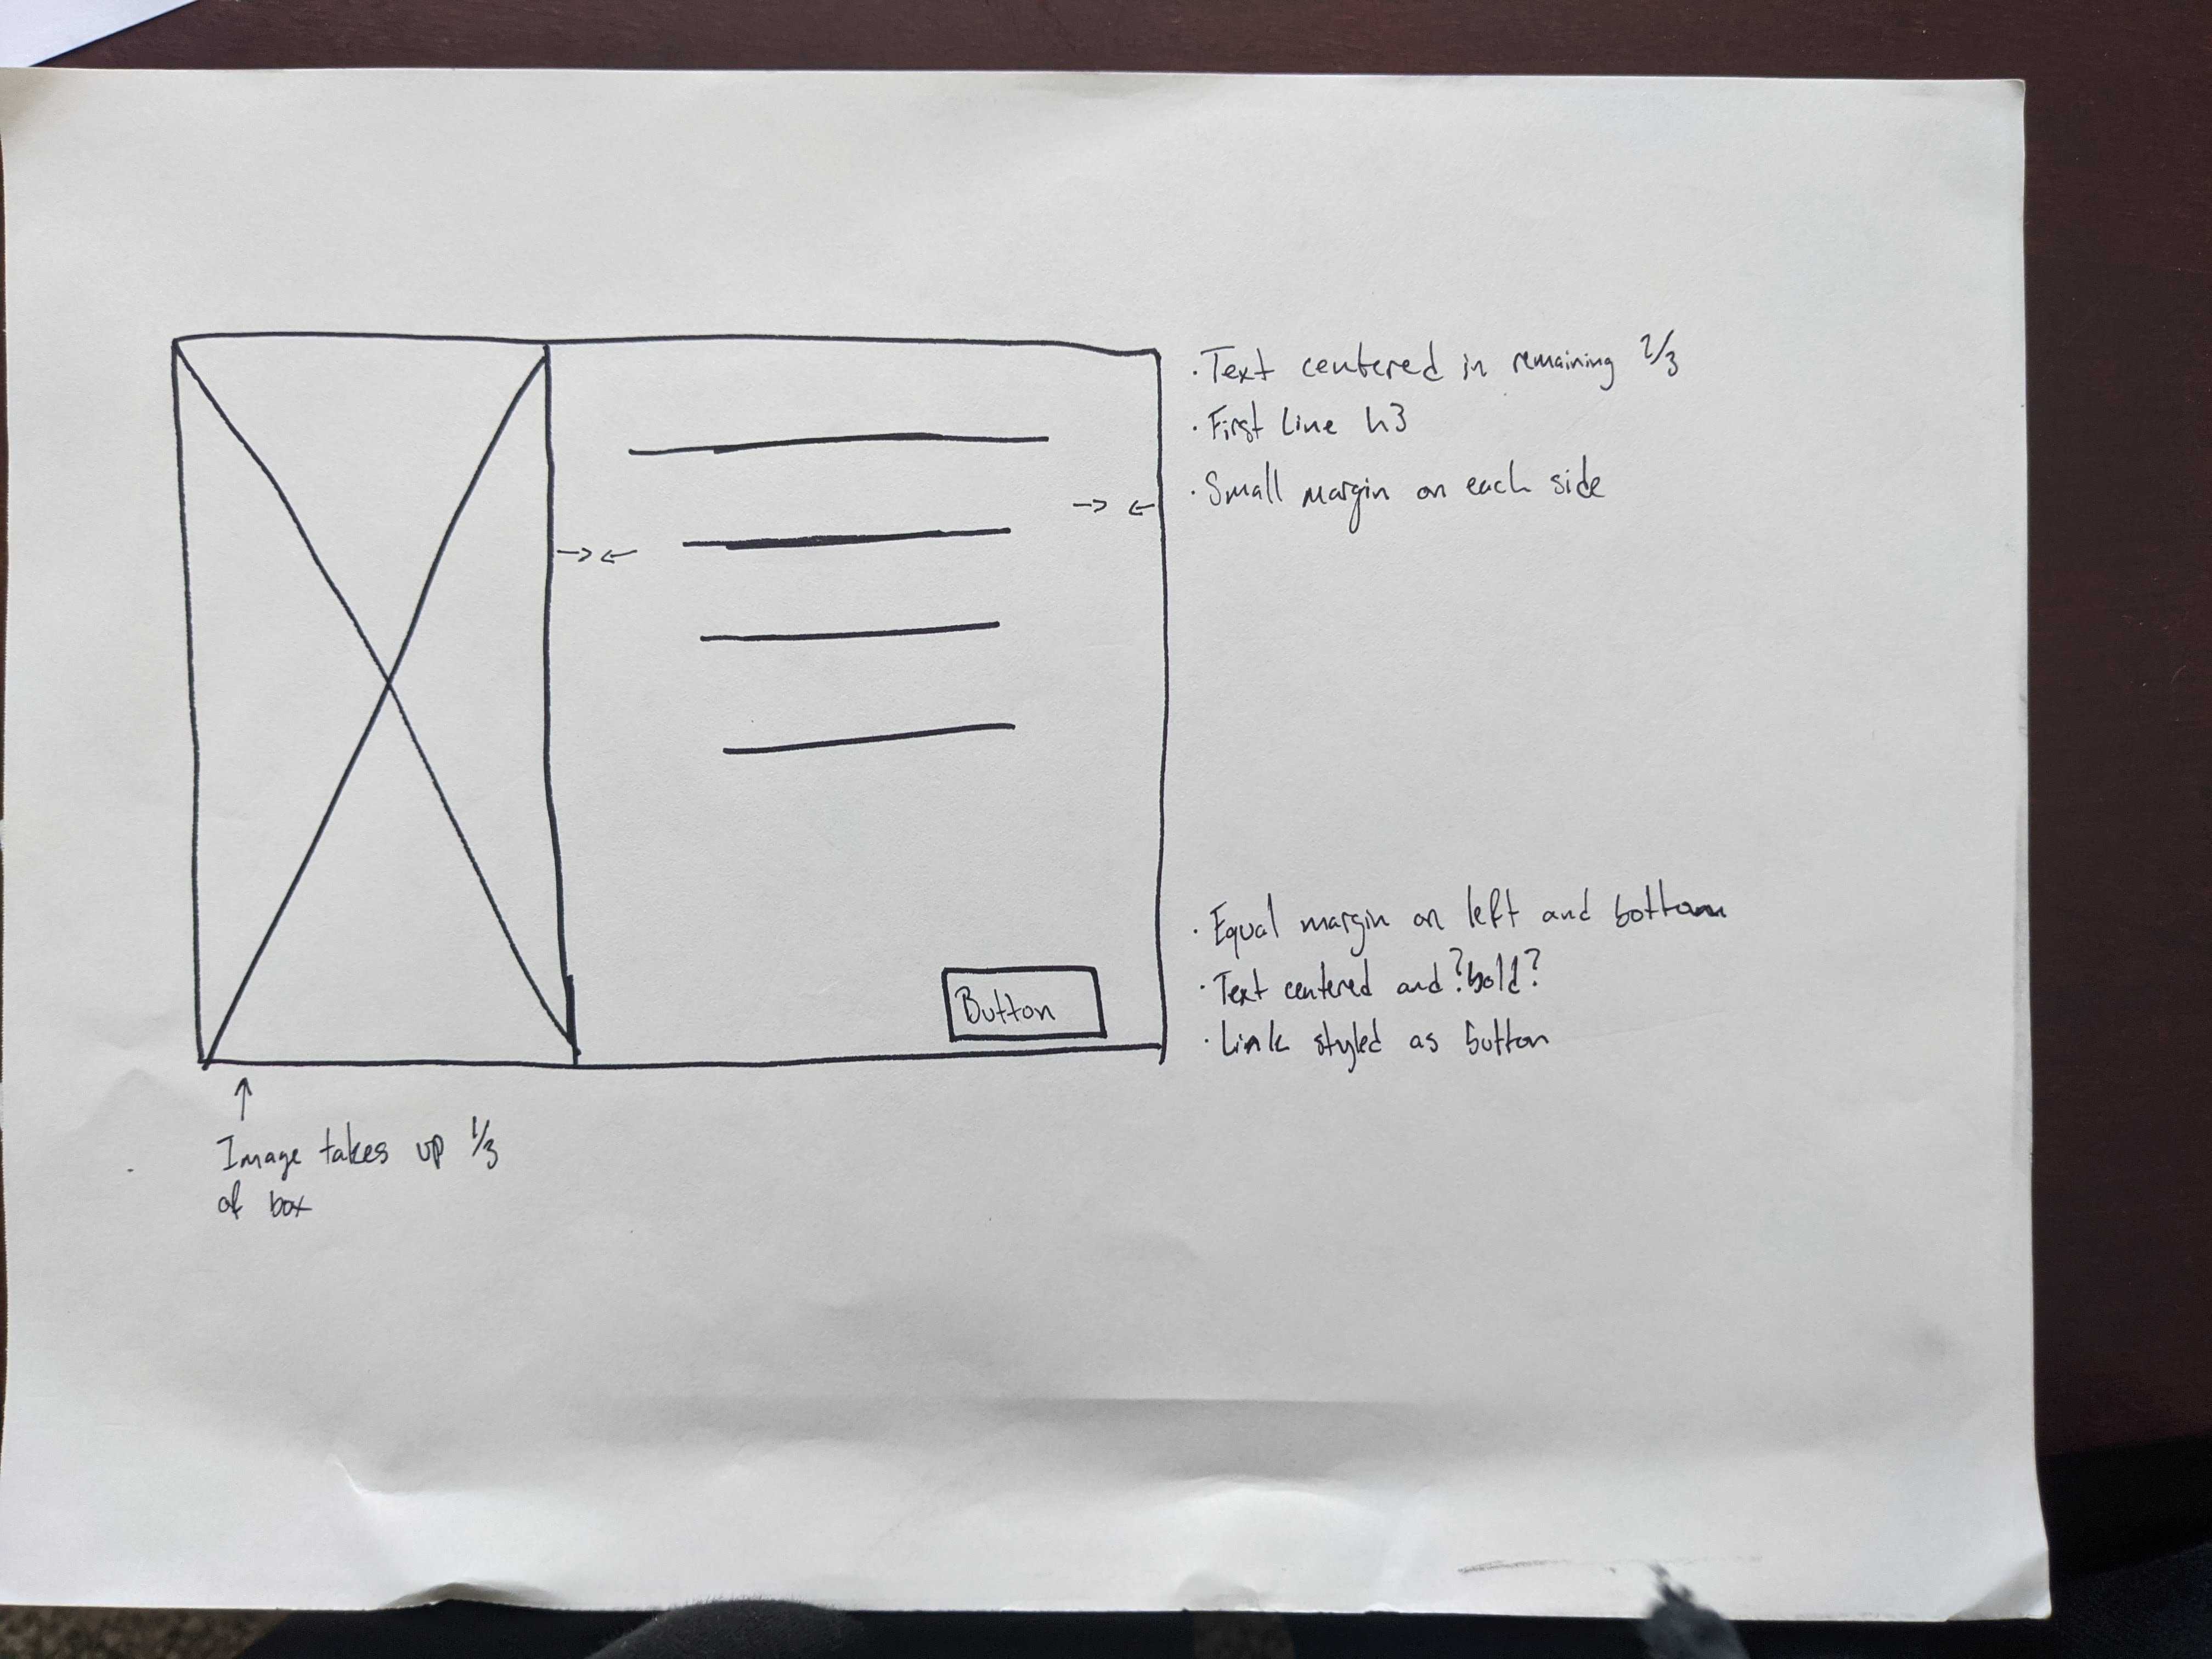 · Text centered in remaining 2/3
· First line h3
· Small margin on each side
Button
· Equal margin on left and bottom
· Text centered and ?bold?
· Link styled as button
Image takes up 1/3
of box